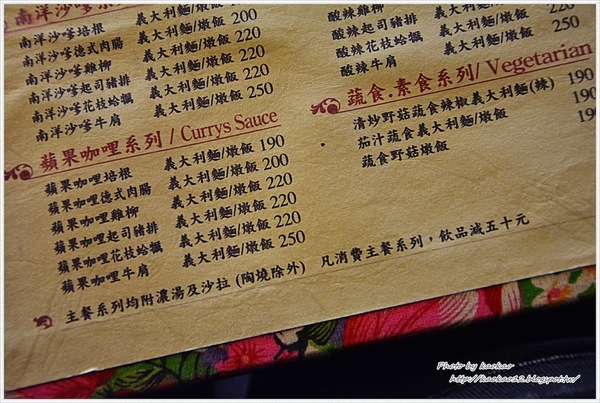 南洋沙嗲系列
南洋沙嗲培根
南洋沙嗲德式肉腸 義大利麵/燉飯 200
南洋沙嗲雞柳 義大利麵/燉飯 220
南洋沙嗲起司豬排 義大利麵/燉飯 220
南洋沙嗲花枝蛤蠣 義大利麵/燉飯 220
南洋沙嗲牛肩 義大利麵/燉飯 250
蘋果咖哩系列 / Currys Sauce
蘋果咖哩培根 義大利麵/燉飯 190
蘋果咖哩德式肉腸 義大利麵/燉飯 200
蘋果咖哩雞柳 義大利麵/燉飯 220
蘋果咖哩起司豬排 義大利麵/燉飯 220
蘋果咖哩花枝蛤蠣 義大利麵/燉飯 220
蘋果咖哩牛肩 義大利麵/燉飯 250
酸辣雞柳
酸辣起司豬排 義大利麵/燉飯
酸辣花枝蛤蠣 義大利麵/燉飯 220
酸辣牛肩 義大利麵/燉飯 250
蔬食.素食系列/ Vegetarian
清炒野菇蔬食辣椒義大利麵(辣) 190
茄汁蔬食義大利麵/燉飯 190
蔬食野菇燉飯 190
主餐系列均附濃湯及沙拉 (陶燒除外) 凡消費主餐系列，飲品減五十元
Photo by kaokao
http://kaokao12.blogspot.tw/